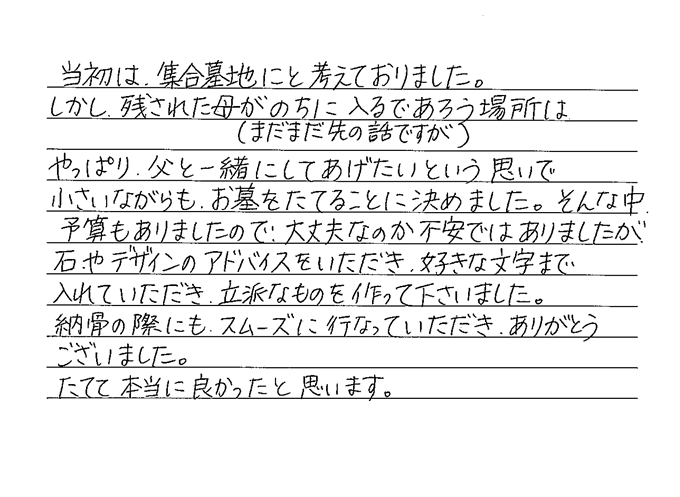 当初は、集合墓地にと考えておりました。
しかし、残された母がのちに入るであろう場所は
(まだまだ先の話ですが)
やっぱり、父と一緒にしてあげたいという思いで
小さいながらも、お墓をたてることに決めました。そんな中、
予算もありましたので、大丈夫なのか不安ではありましたが、
石やデザインのアドバイスをいただき、好きな文字まで
入れていただき、立派なものを作って下さいました。
納骨の際にも、スムーズに行なっていただき、ありがとう
ございました。
たてて本当に良かったと思います。